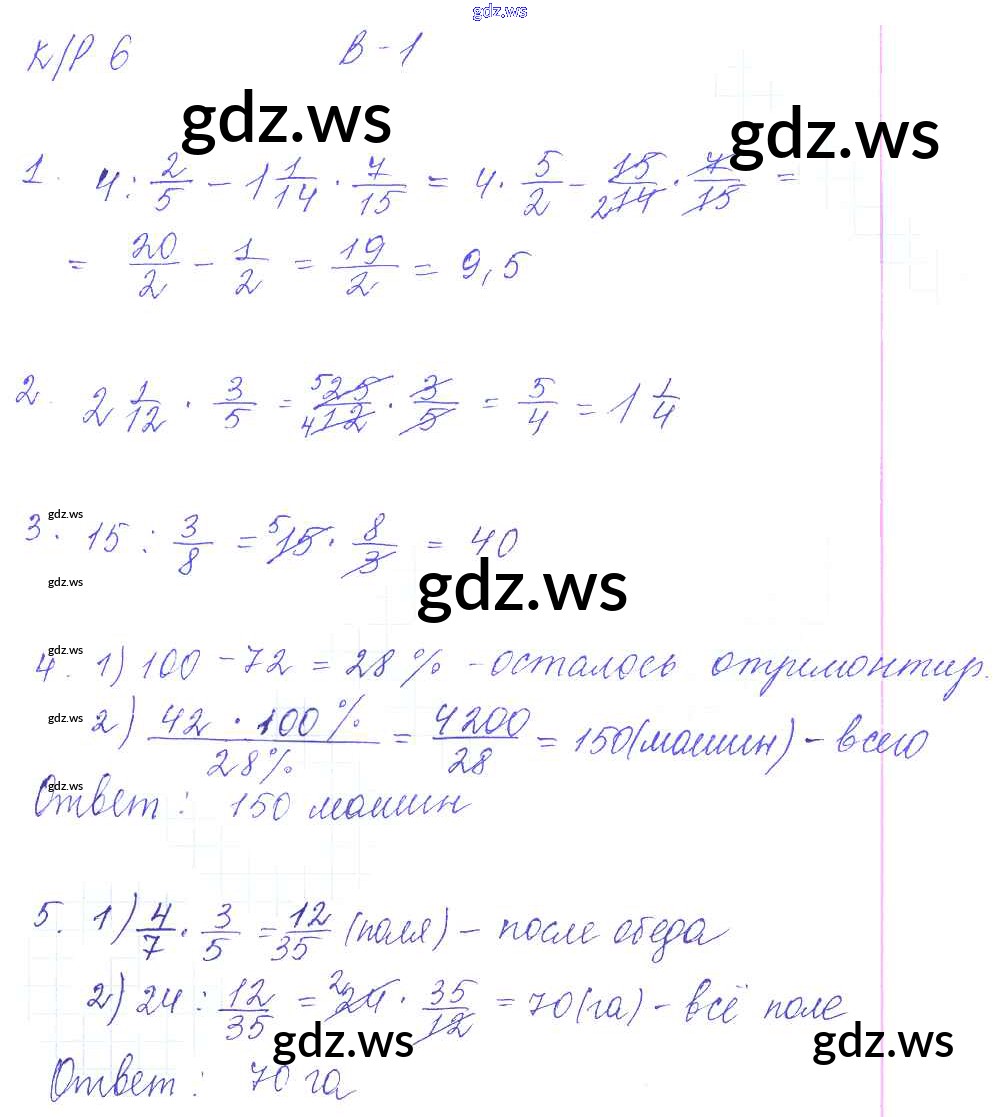 gdz.ws
К/Р 6 В-1
gdz.ws gdz.ws
1. 4 : 2/5 - 1 1/14 · 7/15 = 4 · 5/2 - 15/2 14 · 7/15 =
= 20/2 - 1/2 = 19/2 = 9,5
2. 2 1/12 · 3/5 = 5 25/4 12 · 3/5 = 5/4 = 1 1/4
gdz.ws
3. 15 : 3/8 = 5 15 · 8/3 = 40
gdz.ws gdz.ws
gdz.ws
4. 1) 100 - 72 = 28 % - осталось отримонтир.
gdz.ws
2) 42 · 100 %/28% = 4200/28 = 150 (машин) - всего
gdz.ws
Ответ: 150 машин
5. 1) 4/7 · 3/5 = 12/35 (поля) - после обеда
2) 24 : 12/35 = 2 24 · 35/12 = 70 (га) - всё поле
gdz.ws gdz.ws
Ответ: 70 га